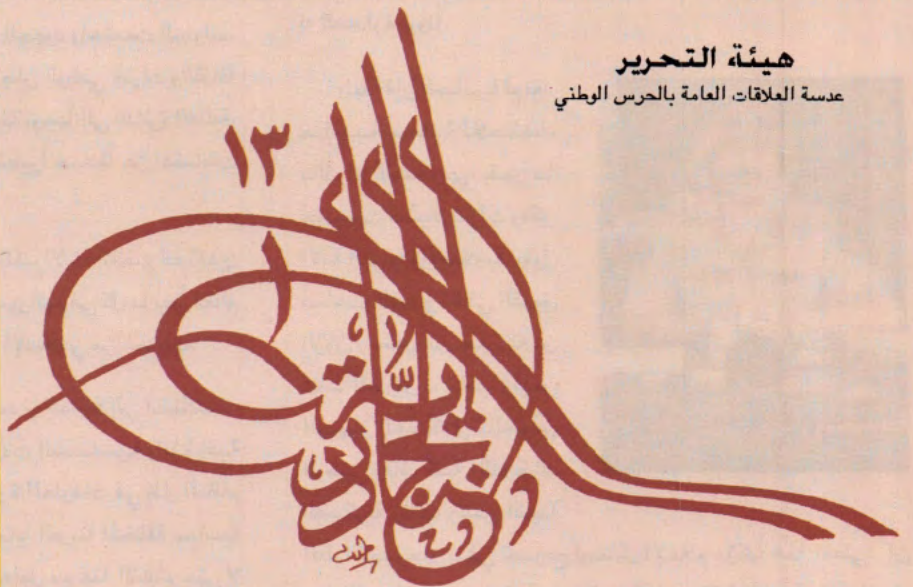 هيئة التحرير
عدسة العلاقات العامة بالحرس الوطني
١٣
الجنادرية